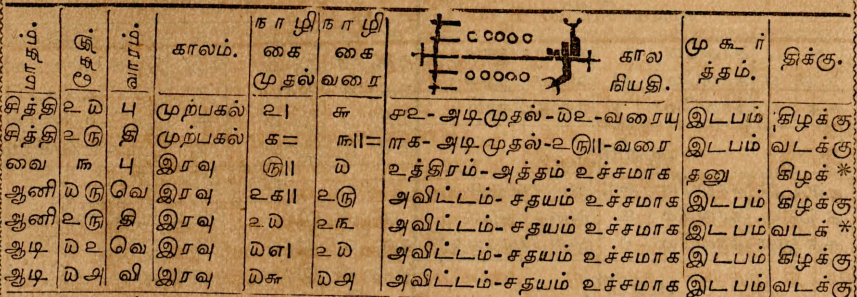 மாதம். தேதி. வாரம். காலம். நாழிகை முதல் நாழிகை வரை கால நியதி. முகூர்த்தம். திக்கு.
சித்தி ௨௰ பு முற்பகல் ௨| ௬ அடிமுதல்-௰௨-வரையு இடபம் கிழக்கு
சித்தி ௨௫ தி முற்பகல் ௧= ௩||= அடிமுதல்-௨௫||-வரை இடபம் வடக்கு
வை ௩ பு இரவு ௫|| ௰ உத்திரம்-அத்தம் உச்சமாக தனு கிழக் *
ஆனி ௰௫ வெ இரவு ௨௧|| ௨௫ அவிட்டம்-சதயம் உச்சமாக இடபம் கிழக்கு
ஆனி ௨௫ தி இரவு ௨௰ ௨௩ அவிட்டம்-சதயம் உச்சமாக இடபம் வடக் *
ஆடி ௰௨ வெ இரவு ௰௭| ௨௰ அவிட்டம்-சதயம் உச்சமாக இடபம் கிழக்கு
ஆடி ௰௮ வி இரவு ௰௬ ௰௮ அவிட்டம்-சதயம் உச்சமாக இடபம் வடக்கு